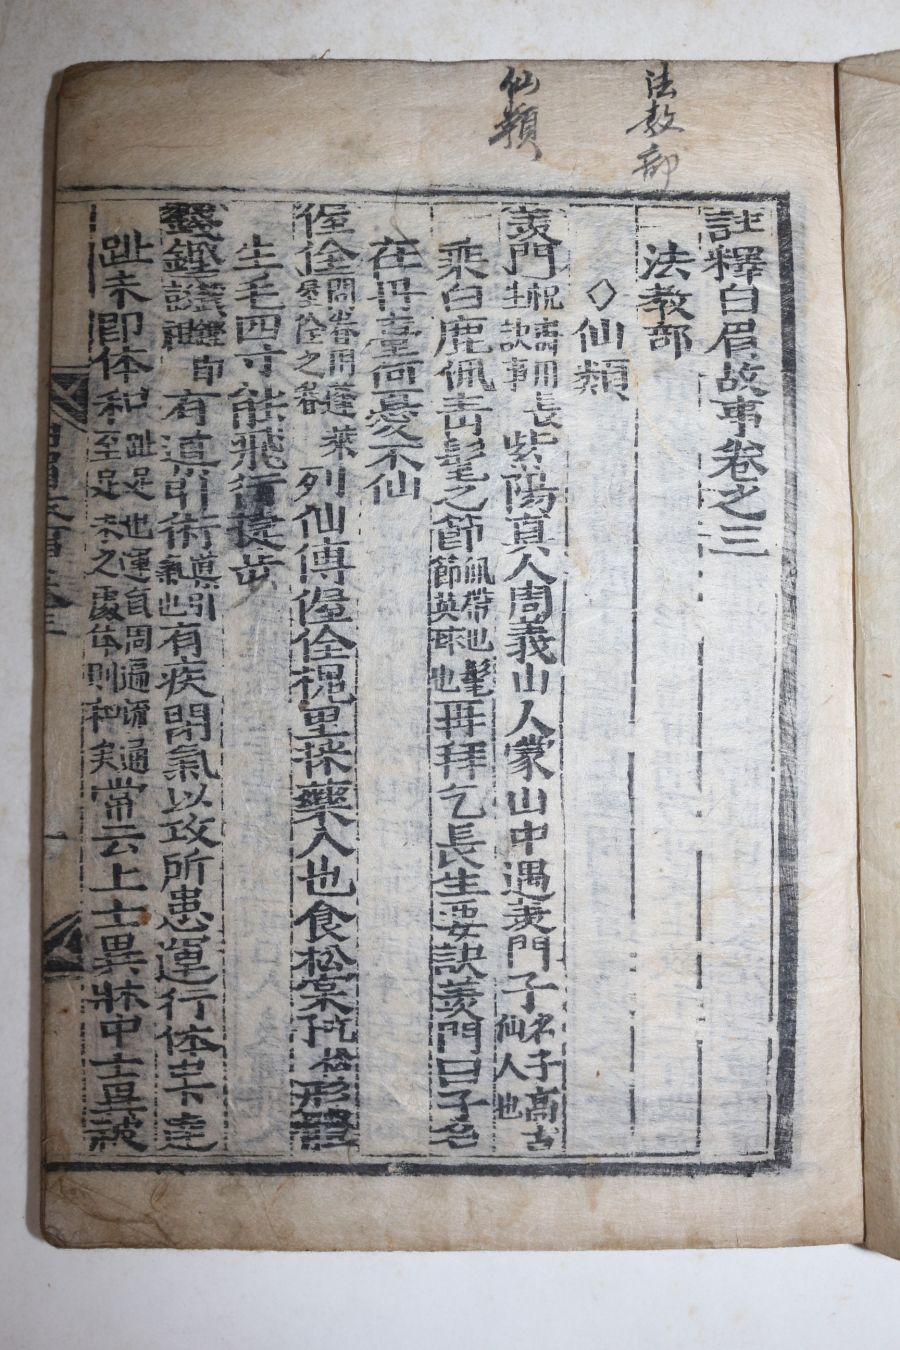 法教部
仙類
註釋白眉故事卷之三
法教部
◇仙類
羨門祝壽用長生訣事紫陽真人周義山人蒙山中遇羨門子名子高古仙人也
乘白鹿佩青髦之節佩帶也髦節英旄也再拜乞長生要訣羨門曰子名
在丹臺何憂不仙
偓佺列仙傳偓佺槐里採藥人也食松實形體
生毛四寸能飛行
彭有道引術導引氣也有疾閉氣以攻所患運行体中下達
趾未即体和趾足也運自周遍彌通至足末之處体則和矣常云上士異牀中士異被